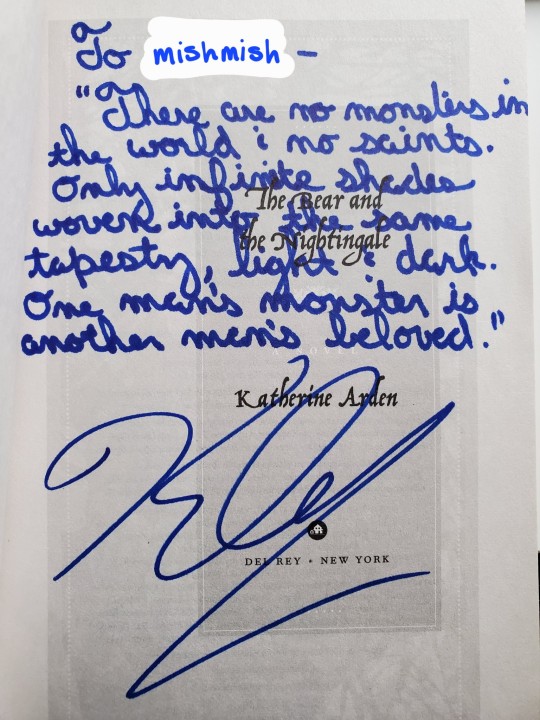 To mishmish –
"There are no monsters in
the world & no saints.
Only infinite shades
The Bear and
woven into the same
the Nightingale
tapestry, light & dark.
One man's monster is
another man's beloved."
A NOVEL
Katherine Arden
DEL REY • NEW YORK